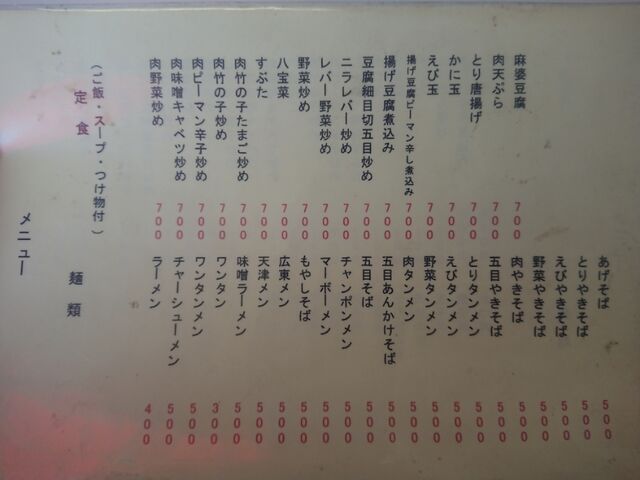 メニュー
定食
(ご飯・スープ・つけ物付)
肉野菜炒め 700
肉味噌キャベツ炒め 700
肉ピーマン辛子炒め 700
肉竹の子炒め 700
肉竹の子たまご炒め 700
すぶた 700
八宝菜 700
野菜炒め 700
レバー野菜炒め 700
ニラレバー炒め 700
豆腐細目切五目炒め 700
揚げ豆腐煮込み 700
揚げ豆腐ピーマン辛し煮込み 700
えび玉 700
かに玉 700
とり唐揚げ 700
肉天ぷら 700
麻婆豆腐 700
麺類
ラーメン 400
チャーシューメン 500
ワンタンメン 500
ワンタン 300
味噌ラーメン 500
天津メン 500
広東メン 500
もやしそば 500
マーボーメン 500
チャンポンメン 500
五目そば 500
五目あんかけそば 500
肉タンメン 500
野菜タンメン 500
えびタンメン 500
とりタンメン 500
五目やきそば 500
肉やきそば 500
野菜やきそば 500
えびやきそば 500
とりやきそば 500
あげそば 500